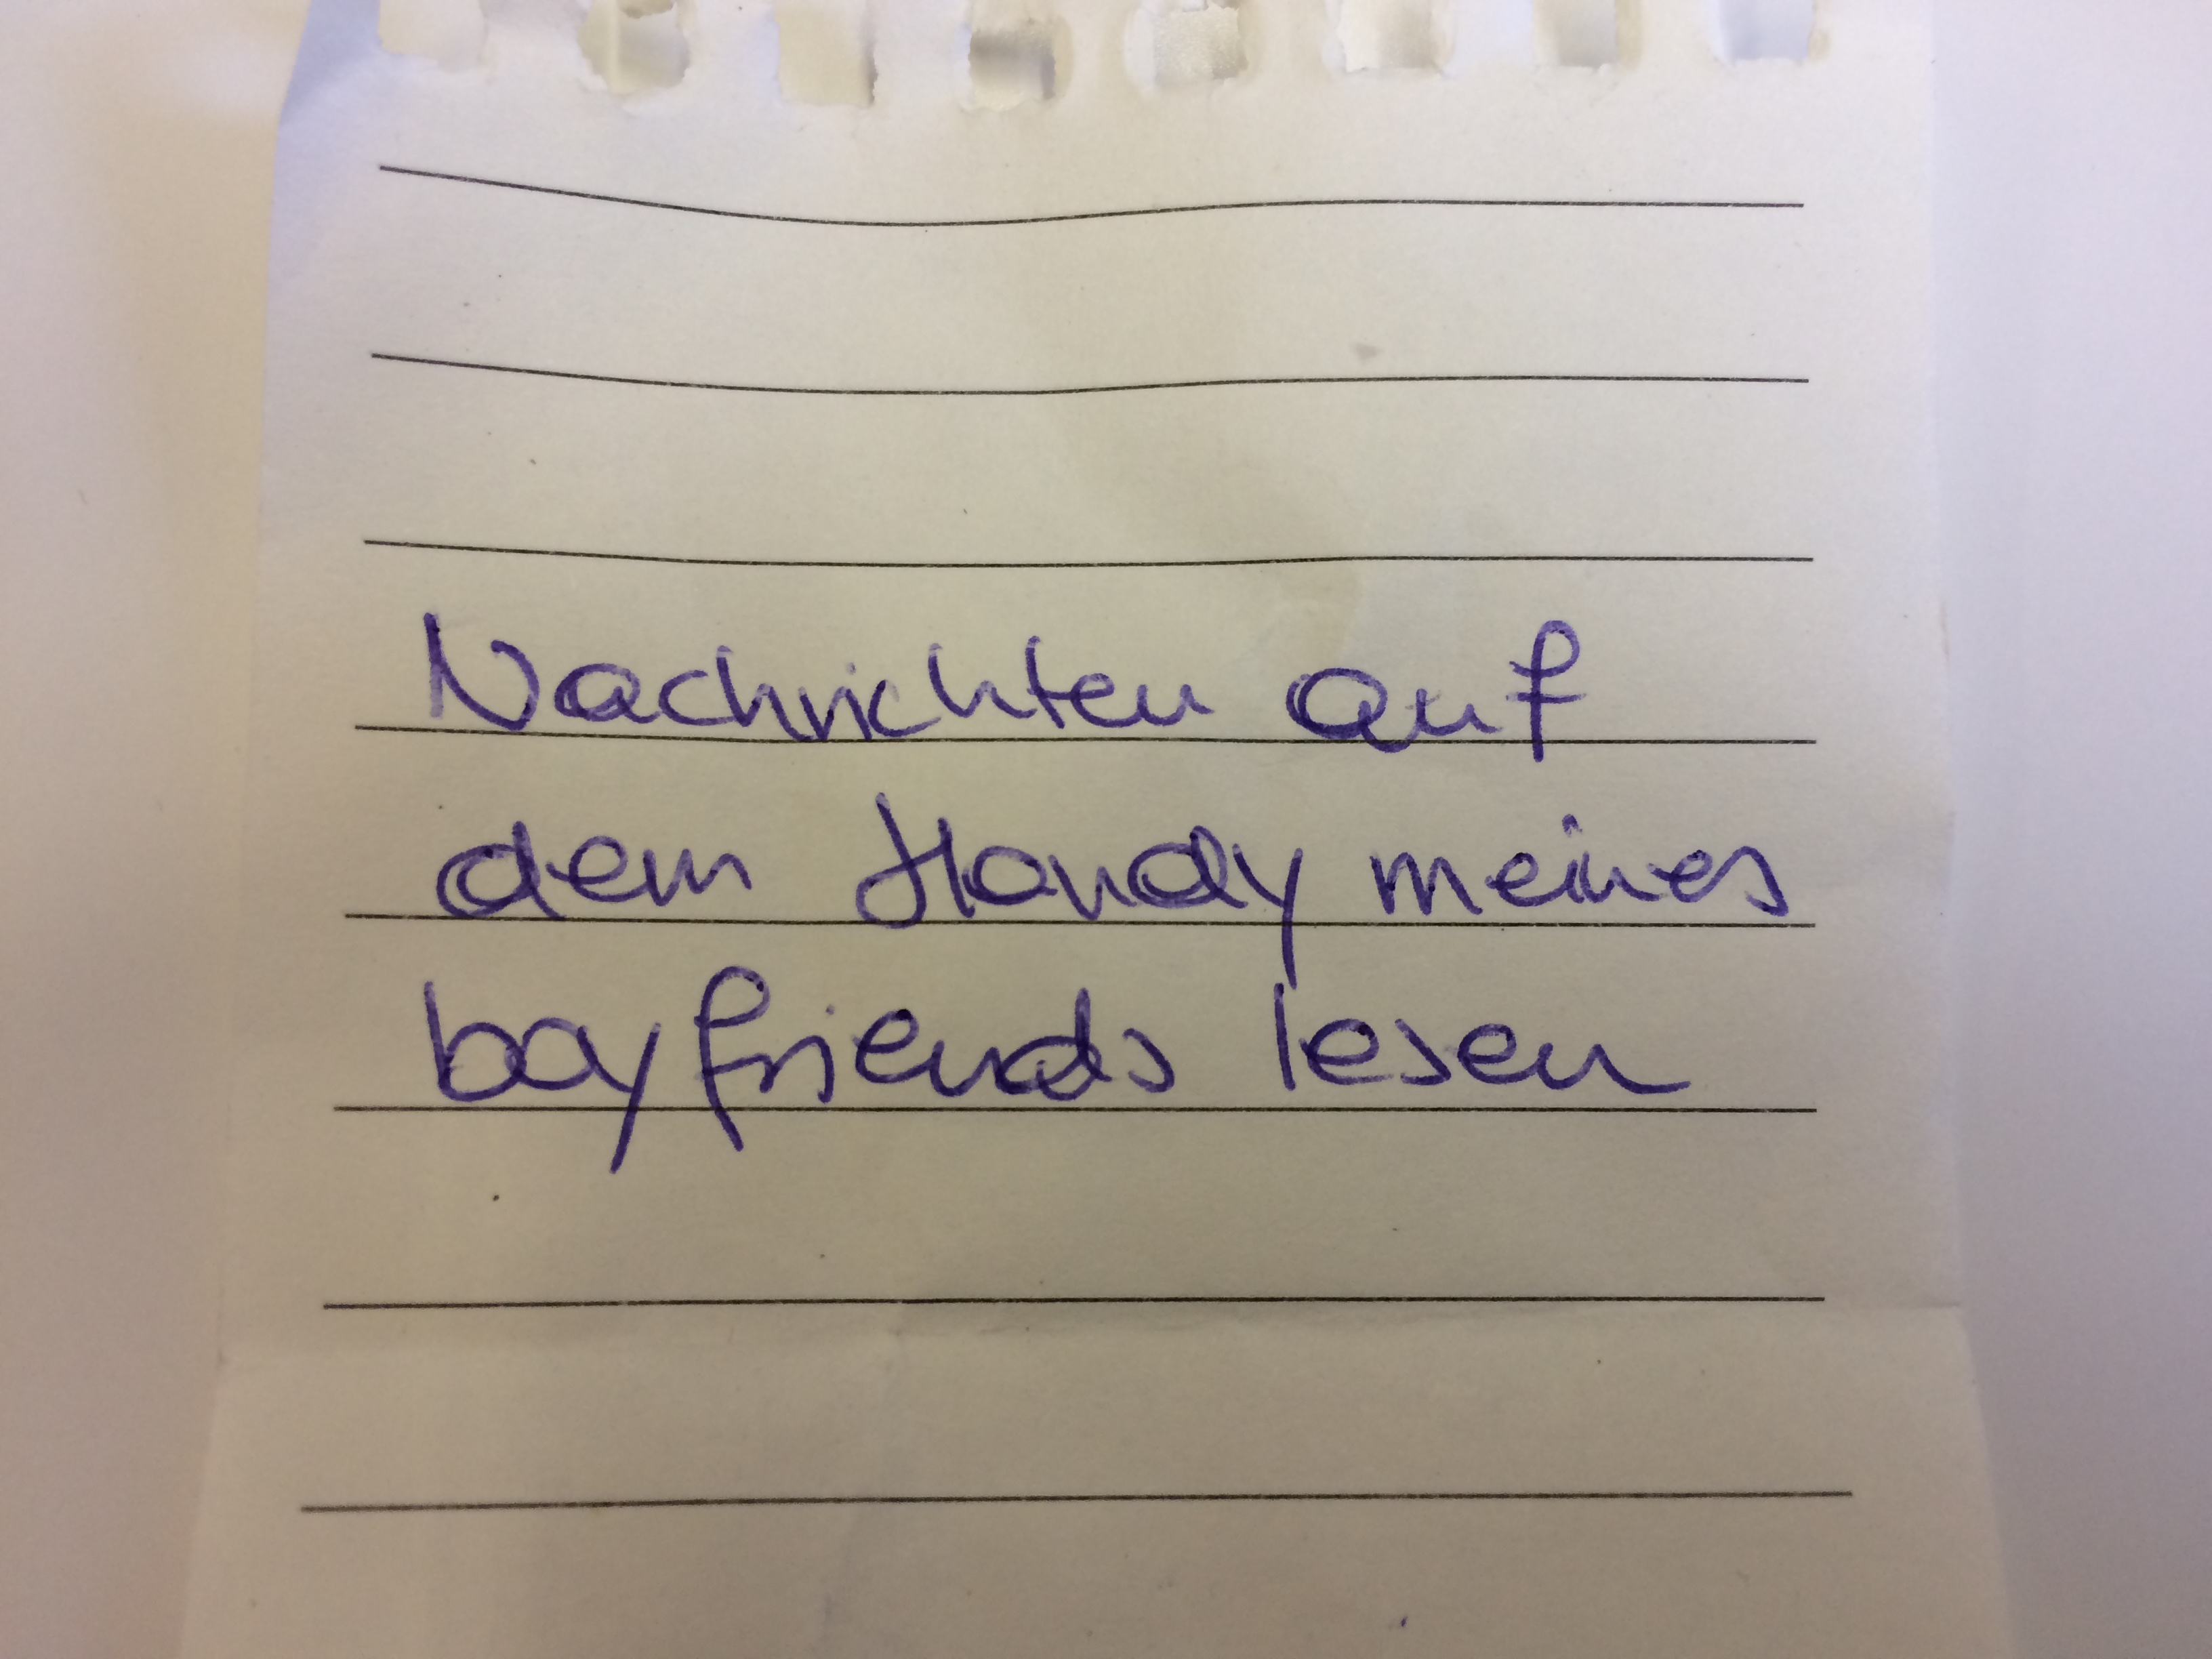 Nachrichten auf
dem Handy meines
boyfriends lesen